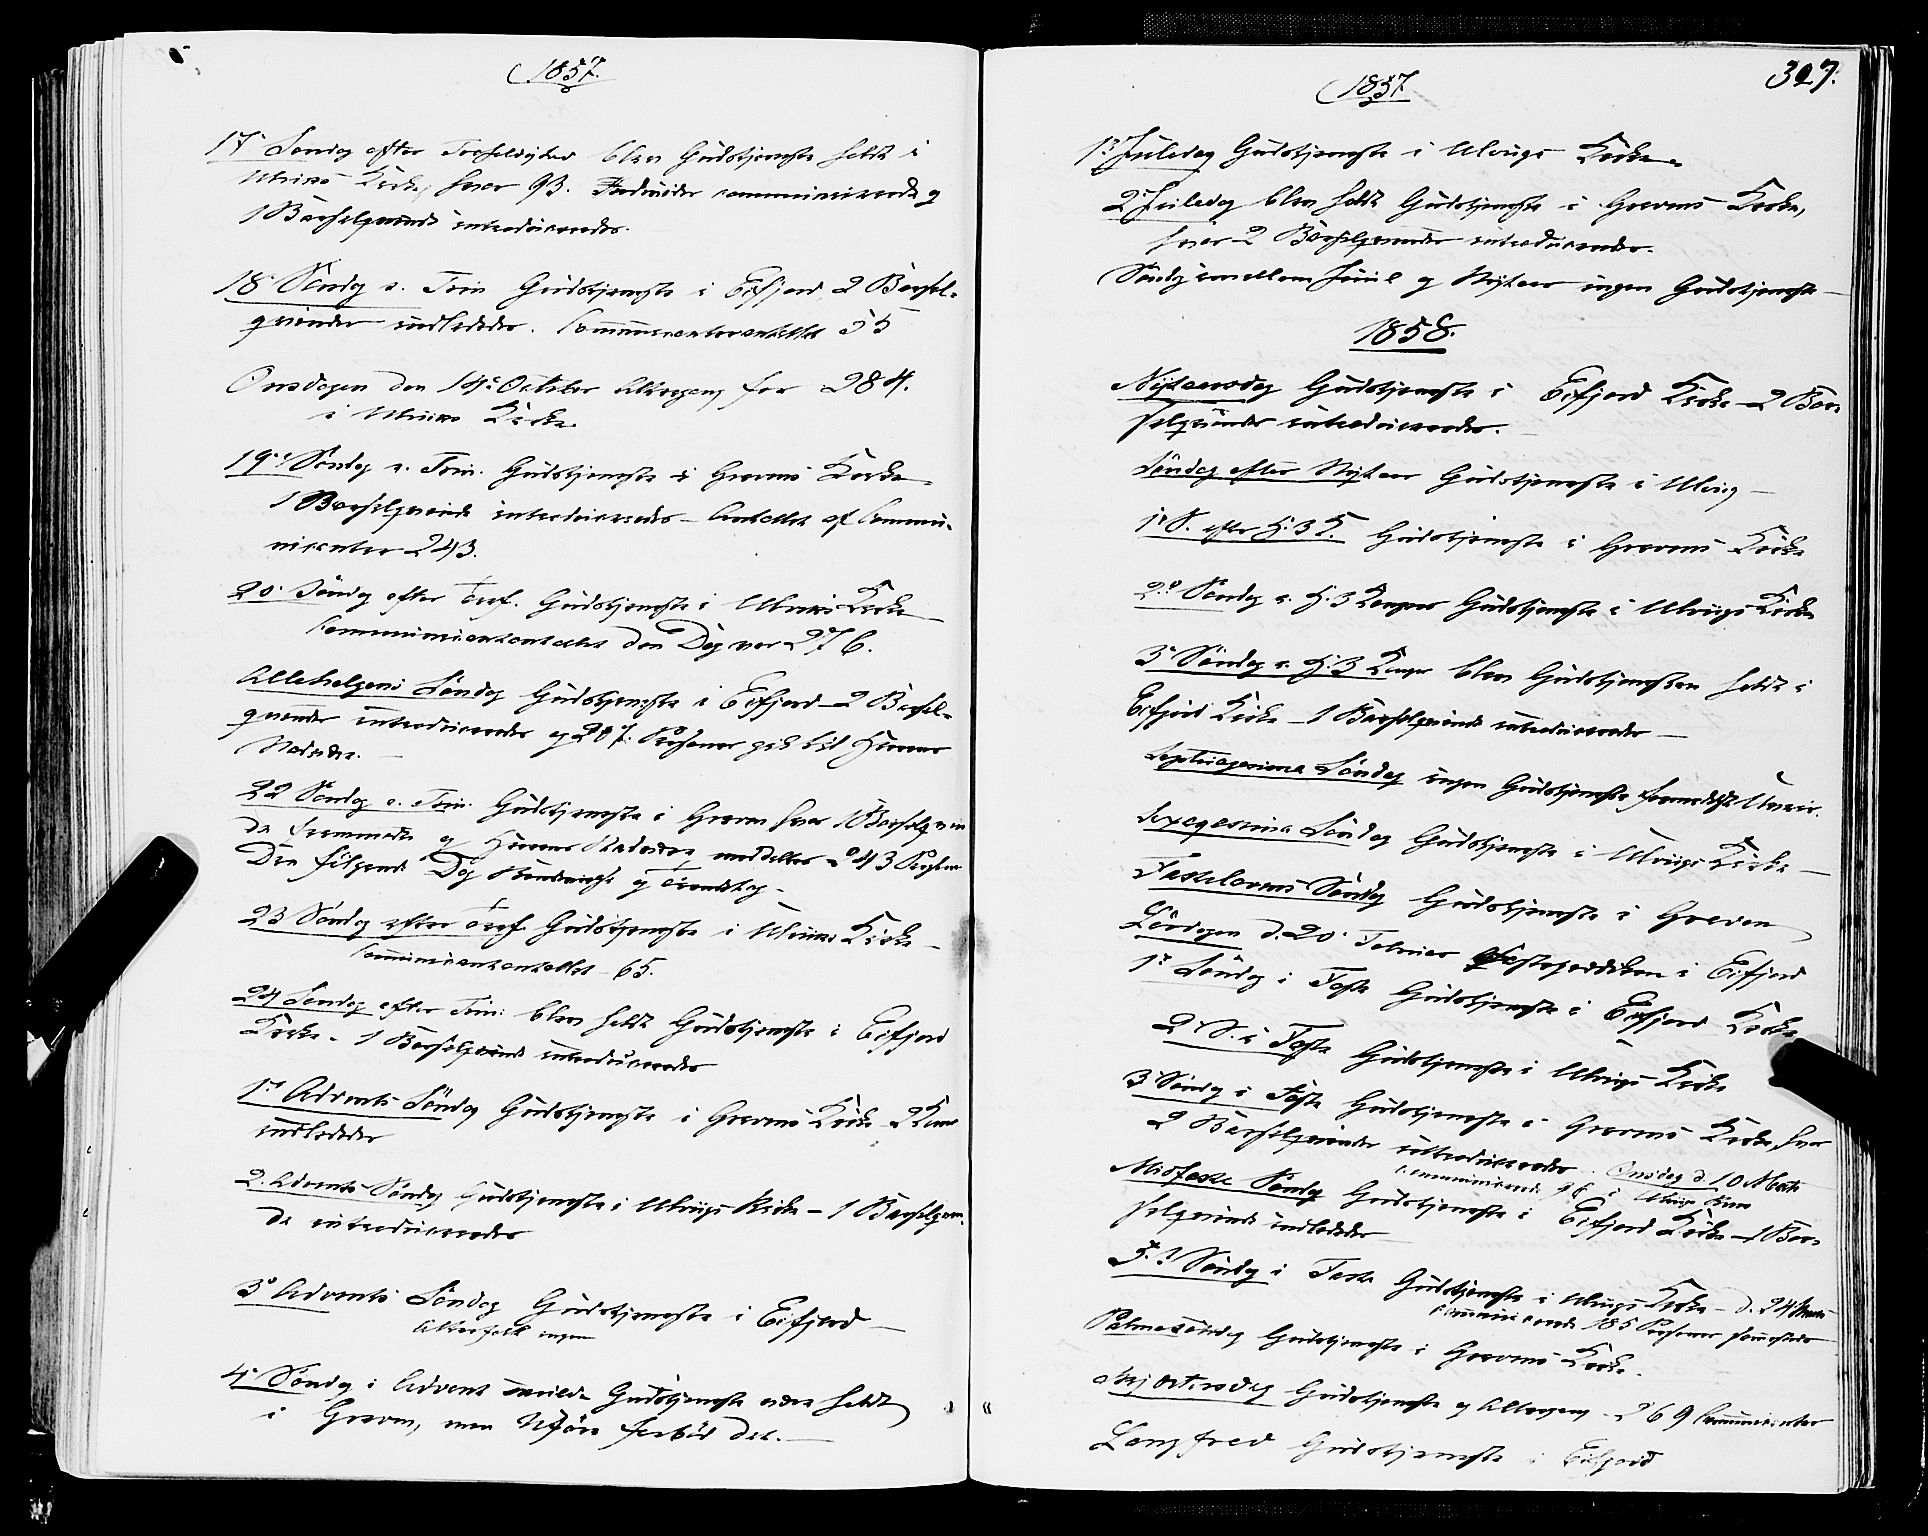 1857.
17. Søndag efter Trefoldighed blev Gudstjeneste holdt i
Ulviks Kirke, hvor 93. Individer communicerede og
1 Barselqvinde introduceredes.
18. Søndag e. Trin Gudstjeneste i Eifjord, 2 Barsel-
qvinder indlededes. Communicanterantallet 55
Onsdagen den 14de October Altergang for 284.
i Ulviks Kirke.
19de Søndag e. Trin. Gudstjeneste i Gravens Kirke
1 Barselqvinde introduceredes - Antallet af Commu-
nicanter 243.
20. Søndag efter Tref. Gudstjeneste i Ulviks Kirke
Communicantantallet den Dag var 276.
Allehelgens Søndag Gudstjeneste i Eifjord - 2 Barsel-
qvinder introduceredes og 207. Personer gik til Herrens
Nadvere. -
22 Søndag e. Trin. Gudstjeneste i Graven hvor 1 Barselqvin
de fremmødte og Herrens Nadvere meddeltes 243 Personer
Den følgende Dag
23 Søndag efter Tref. Gudstjeneste i Ulviks Kirke -
Communicantantallet - 65.
24 Søndag efter Trin: blev holdt Gudstjeneste i Eifjord
Kirke. - 1 Barselqvinde introduceredes
1ste Advents Søndag Gudstjeneste i Gravens Kirke - 2 Koner
indlededes
2. Advents Søndag Gudstjeneste i Ulviigs Kirke - 1 Barselqvin-
de introduceredes
3die Advents Søndag Gudstjeneste i Eifjord -
Alterfolk ingen
4. Søndag i Advent skulde Gudstjeneste være holdt
i Graven, men Uføre forbød det. -
1857
307.
1ste Juledag Gudstjeneste i Ulvigs Kirke.
2. Juledag blev holdt Gudstjeneste i Gravens Kirke,
hvor 2 Barselqvinder introduceredes.
Søndag imellem Juul og Nytaar ingen Gudstjeneste -
1858.
Nytaarsdag Gudstjeneste i Eifjord Kirke - 2 Bar-
selqvinder introduceredes. -
Søndag efter Nytaar Gudstjeneste i Ulvig -
1ste S. efter H. 3 K. Gudstjeneste i Gravens Kirke
2den Søndag e. H. 3 Konger Gudstjeneste i Ulviigs Kirke
3die Søndag e. H. 3 Konger blev Gudstjenesten holdt i
Eifjord Kirke - 1 Barselqvinde introduceredes -
Septuagesima Søndag ingen Gudstjeneste formedelst Uveir.
Sexagesima Søndag Gudstjeneste i Ulviigs Kirke -
Fastelavns Søndag Gudstjeneste i Graven
Løverdagen d. 20. Februar Fasteprædiken i Eifjord
1ste Søndag i Faste Gudstjeneste i Eifjord Kirke
2. S. i Faste Gudstjeneste i Ulvigs Kirke
3. Søndag i Faste Gudstjeneste i Gravens Kirke, hvor
2 Barselqvinder introduceredes. Onsdag d. 10 Marts
communicerede 96 i Ulvigs
Midfaste Søndag Gudstjeneste i Eifjord Kirke - 1 Bar-
selqvinde indlededes -
5te Søndag i Faste Gudstjeneste i Ulvigs Kirke - d. 24 Marts
communicerede 185 Personer sammesteds
Palmesøndag Gudstjeneste i Gravens Kirke.
Skjærtorsdag Gudstjeneste og Altergang - 269 Communicanter
Langfred Gudstjeneste i Eifjord